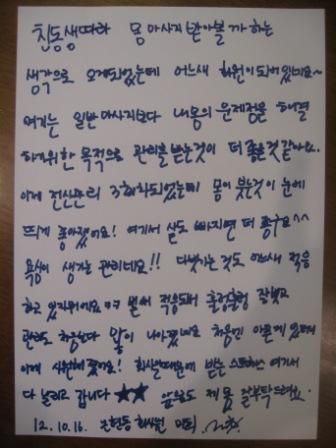 친동생따라 몸 마사지 받아볼까 하는
생각으로 오게되었는데 어느새 회원이 되어있네요~
여기는 일반마사지보다 내몸의 문제점을 해결
하기위한 목적으로 관리를 받는것이 더 좋은것 같아요.
이제 전신관리 3회차되었는데 몸이 붓는것이 눈에
띄게 좋아졌어요! 여기서 살도 빠지면 더 좋구요^^
욕심이 생기는 관리네요!! 다벗기는 것도 어느새 적응
하고 있지뭐에요 ㅋㅋ 벌써 적응되서 훌렁훌렁 잘벗고
관리도 처음보다 많이 나아졌네요 처음엔 아픈게 있더니
이제 시원해졌어요! 회사생활때문에 받는 스트레스 여기서
다 날리고 갑니다 ★★ 앞으로도 계속 잘부탁드려요.
12. 10. 16.